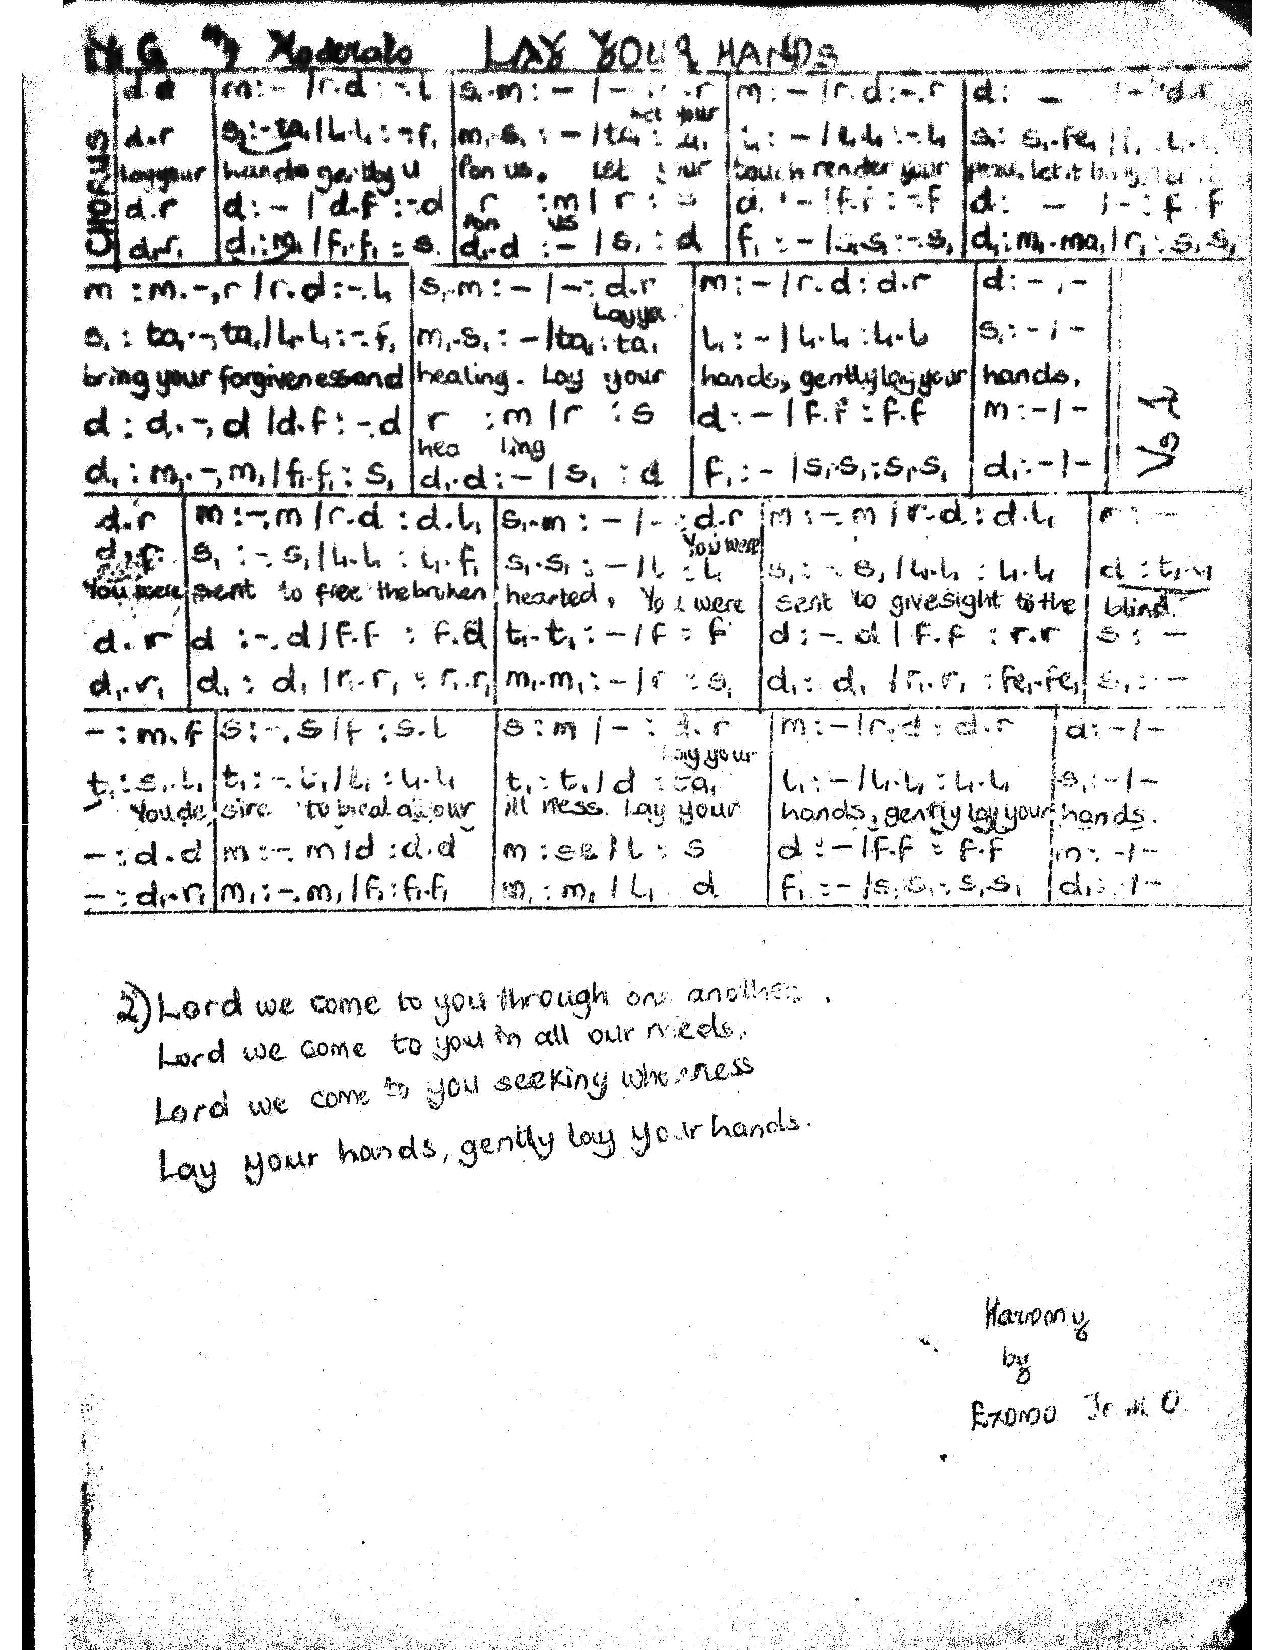 Moderato LAY YOUR HANDS
CHORUS
m : - / r . d : - . l | s₁ . m : - / - : . r | m : - / r . d : - . r | d : - / - : d . r
your
d . r | s₁ : - ta₁ / l₁ . l₁ : - f₁ | m₁ . s₁ : - / ta₁ : | l₁ : - / l₁ . l₁ : - l₁ | s₁ : s₁ . fe₁ /
lay your | hands gently u | pon us. Let your | touch render your | let it bring
d . r | d : - / d . f : - . d | r : m / r : s | d : - / f . f : - f | d : - / - : f . f
pon us
d . r₁ | d₁ : m₁ / f₁ . f₁ : s₁ | d₁ . d : - / s₁ : d | f₁ : - / s₁ . s₁ : - . s₁ | d₁ : m₁ . ma₁ / r₁ : s₁ . s₁
m : m . - , r / r . d : - . l₁ | s₁ . m : - / - : d . r | m : - / r . d : d . r | d : - / -
Lay yo
s₁ : ta₁ . - , ta₁ / l₁ . l₁ : - . f₁ | m₁ . s₁ : - / ta₁ : ta₁ | l₁ : - / l₁ . l₁ : l₁ . l₁ | s₁ : - / -
bring your forgiveness and | healing. Lay your | hands, gently lay your | hands.
d : d . - , d / d . f : - . d | r : m / r : s | d : - / f . f : f . f | m : - / -
hea ling
d₁ : m₁ . - , m₁ / f₁ . f₁ : s₁ | d₁ . d : - / s₁ : d | f₁ : - / s₁ . s₁ : s₁ . s₁ | d₁ : - / -
d . r | m : - . m / r . d : d . l₁ | s₁ . m : - / - : d . r | m : - . m / r . d : d . l₁ | r : -
You were
d . f | s₁ : - . s₁ / l₁ . l₁ : l₁ . f₁ | s₁ . s₁ : - / l : l | s₁ : - . s₁ / l₁ . l₁ : l₁ . l₁ | d : t₁ . l₁
You were | sent to free the broken | hearted, You were | sent to give sight to the | blind.
d . r | d : - . d / f . f : f . d | t₁ . t₁ : - / f : f | d : - . d / f . f : r . r | s : -
d₁ . r₁ | d₁ : d₁ / r₁ . r₁ : r₁ . r₁ | m₁ . m₁ : - / r : s₁ | d₁ : d₁ / r₁ . r₁ : fe₁ . fe₁ | s₁ : -
- : m . f | s : - . s / f : s . l | s : m / - : d . r | m : - / r . d : d . r | d : - / -
lay your
t₁ : s₁ . l₁ | t₁ : - . t₁ / l₁ : l₁ . l₁ | t₁ : t₁ / d : ta₁ | l₁ : - / l₁ . l₁ : l₁ . l₁ | s₁ : - / -
You de | sire to heal all our | ill ness. Lay your | hands, gently lay your | hands.
- : d . d | m : - . m / d : d . d | m : se / l : s | d : - / f . f : f . f | m : - / -
- : d₁ . r₁ | m₁ : - . m₁ / f₁ : f₁ . f₁ | m₁ : m₁ / l₁ d | f₁ : - / s₁ . s₁ : s₁ . s₁ | d₁ : - / -
2) Lord we come to you through one another.
Lord we come to you in all our needs.
Lord we come to you seeking wholeness
Lay your hands, gently lay your hands.
Harmony
by